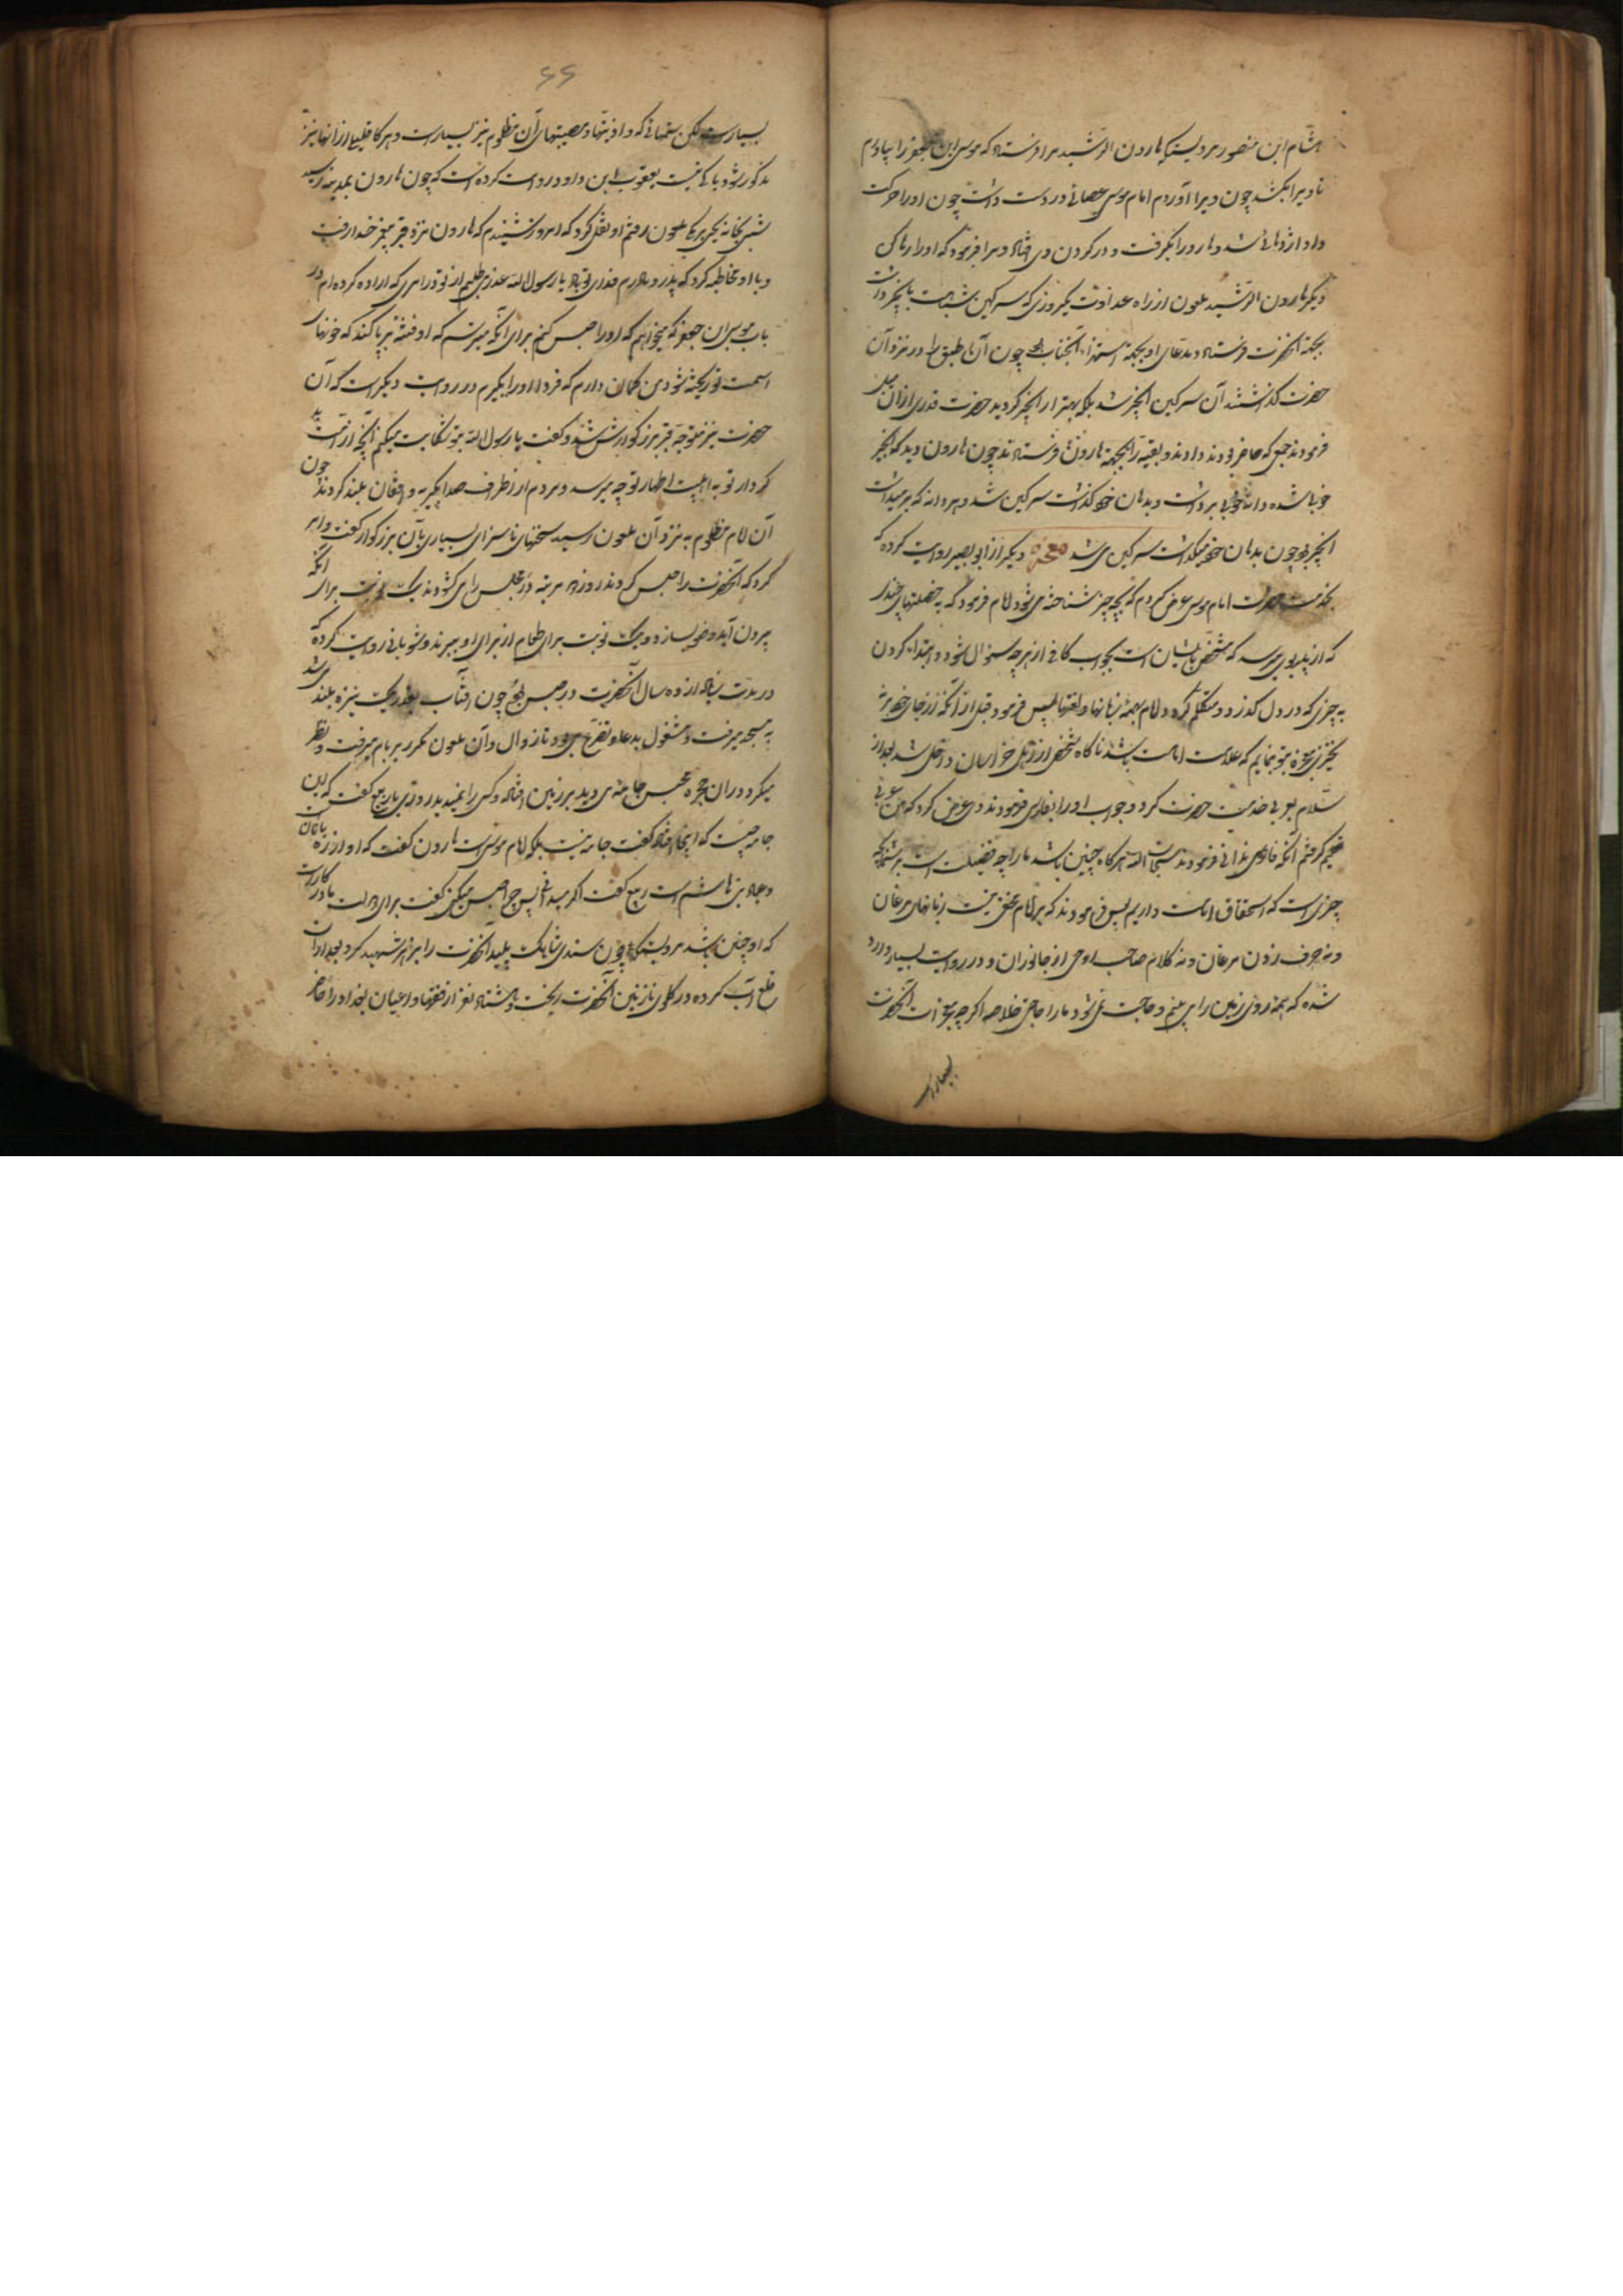 هشام ابن منصور مرویست که هارون الرشید مرا فرستاد که موسی ابن جعفر را بیاورم
تا ویرا بکشد چون ویرا آوردم امام موسی عصائی در دست داشت چون او را حرکت
داد اژدهائی شد و هارون را بگرفت و در کردن وی افتاد و مرا فرمود که او را رها کن
دیگر هارون الرشید ملعون از راه عداوت یکروزی که سرکین شباهت بانجیر داشت
بجهة آنحضرت فرستاد و مدعای او بجهة استهزاء آنجناب بود چون آن طبق را در نزد آن
حضرت گذاشتند آن سرکین انجیر شد بلکه بهتر از انجیر گردید حضرت قدری از آن میل
فرمودند جمعی که حاضر بودند دادند و بقیه را بجهة هارون فرستادند چون هارون دید که انجیر
خوبی شده دانه خوبی برداشت و بدهان خود گذاشت سرکین شد و هر دانه که برمیداشت
انجیر بود چون بدهان خود میگذاشت سرکین می شد معجزه دیگر از ابو بصیر روایت کرده که
بخدمت حضرت امام موسی عرض کردم که بچه چیز شناخته می شود امام فرمود که به خصلتهای چند
که از پدر بوی برسد که مشخص باشد بیان است بجواب کافی از هر چه سئوال شود و ابتداء کردن
به چیزی که در دل گذرد و متکلم گردد امام بهمه زبانها و لغتها پس فرمود قبل از آنکه از جای خود برخیزی
معجزه بتو بنمایم که علامت امامت باشد ناگاه شخصی از اهل خراسان داخل شد بعد از
سلام بعربی خدمت حضرت کرد و جواب او را بفارسی فرمودند وی عرض کرد که من عربی
تکلم کردم آنکه فارسی ندانی فرمودند سبحان الله هرگاه چنین باشد ما را چه فضیلت است بر شما بچه
چیزی است که استحقاق امامت داریم پس فرمودند که بر امام مخفی نیست زبانهای مرغان
و نه حرف زدن مرغان و نه کلام صاحب روحی از جانوران و در روایت بسیار وارد
شده که همه روی زمین را می بینم و حاجت نمی شود ما را خلاصه اگر چه معجزات آنحضرت
بسیار است
۶۶
بسیار است لکن ستمهائی که و اذیتها و مصیبتهای آن مظلوم نیز بسیار است و هرگاه قلیلی از آنها نیز
مذکور شود باکی نیست یعقوب ابن داود روایت کرده است که چون هارون بمدینه رسید
شبی بخانه یحیی برمکی ملعون رفتم او نقل کرد که امروز شنیدم که هارون نزد قبر پیغمبر خدا رفت
و با او مخاطبه کرد که پدر و مادرم فدای تو باد یا رسول الله عذر می طلبم از تو در امری که اراده کرده ام در
باب موسی ابن جعفر که میخواهم که او را حبس کنم برای آنکه میترسم که او فتنه برپا کند که خونهای
امت تو ریخته شود من گمان دارم که فردا او را بگیرم در روایت دیگر است که آن
حضرت نیز متوجه قبر بزرگوارش شد و گفت یا رسول الله بتو شکایت میکنم آنچه از امت بد
کردار تو به اهلبیت اطهار تو چه میرسد و مردم از اطراف صدا بگریه و افغان بلند کردند چون
آن امام مظلوم به نزد آن ملعون رسید سخنهای ناسزای بسیاری بآن بزرگوار گفت و امر
کرد که آنحضرت را حبس کردند روز دو مرتبه در مجلس را می گشودند یک نوبت برای آنکه
بیرون آید وضو بسازد و یک نوبت برای طعام از برای او ببرند و شوبانی روایت کرده که
در مدت زیاد از ده سال آنحضرت در حبس بود چون آفتاب بقدر یک نیزه بلند می شد
به سجده میرفت و مشغول بدعا و تضرع می بود تا زوال و آن ملعون مکرر بر بام میرفت و نظر
میکرد در آن حجره محبس جامه می دید بر زمین افتاده و کسی را نمی دید روزی با ربیع گفت که این
جامه چیست که اینجا افتاده گفت جامه نیست بلکه امام موسی است هارون گفت که او از رهبانان
و عباد بنی هاشم است ربیع گفت اگر میدانی پس چرا حبس میکنی گفت برای دولت ما در کار است
که او چنین باشد مرویست که چون سندی شاهک پلید آنحضرت را بزهر شهید کرد بعد از آن
قلع آب کرده در گلوی نازنین آنحضرت ریخت و هشتاد نفر از فقها و اعیان بغداد را حاضر